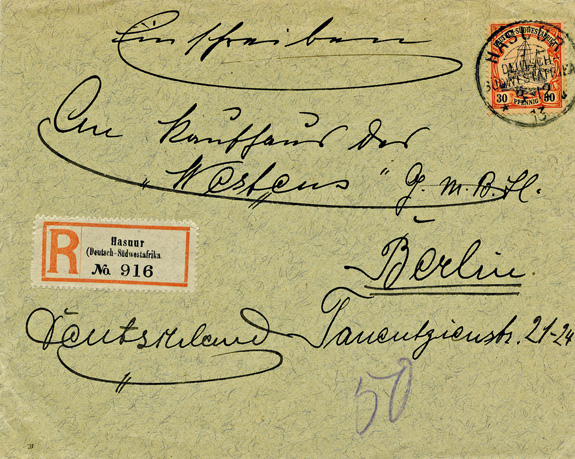 Einschreiben
DEUTSCH-SÜDWESTAFRIKA
30 PFENNIG 30
HASUUR
DEUTSCH-
SÜDWESTAFRIKA
13
An Kaufhaus des
"Westens" G.m.b.H.
R
Hasuur
(Deutsch-Südwestafrika
No. 916
Berlin.
Deutschland Tauentzienstr. 21-24
50